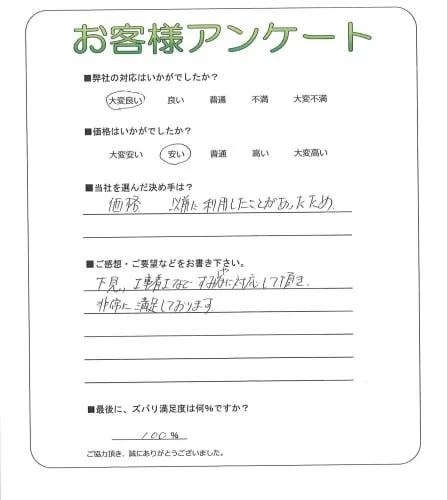 お客様アンケート
■弊社の対応はいかがでしたか？
大変良い 良い 普通 不満 大変不満
■価格はいかがでしたか？
大変安い 安い 普通 高い 大変高い
■当社を選んだ決め手は？
価格 以前に利用したことがあったため.
■ご感想・ご要望などをお書き下さい。
下見、工事着工など すみやかに対応して頂き.
非常に満足しております.
■最後に、ズバリ満足度は何%ですか？
100 %
ご協力頂き、誠にありがとうございました。